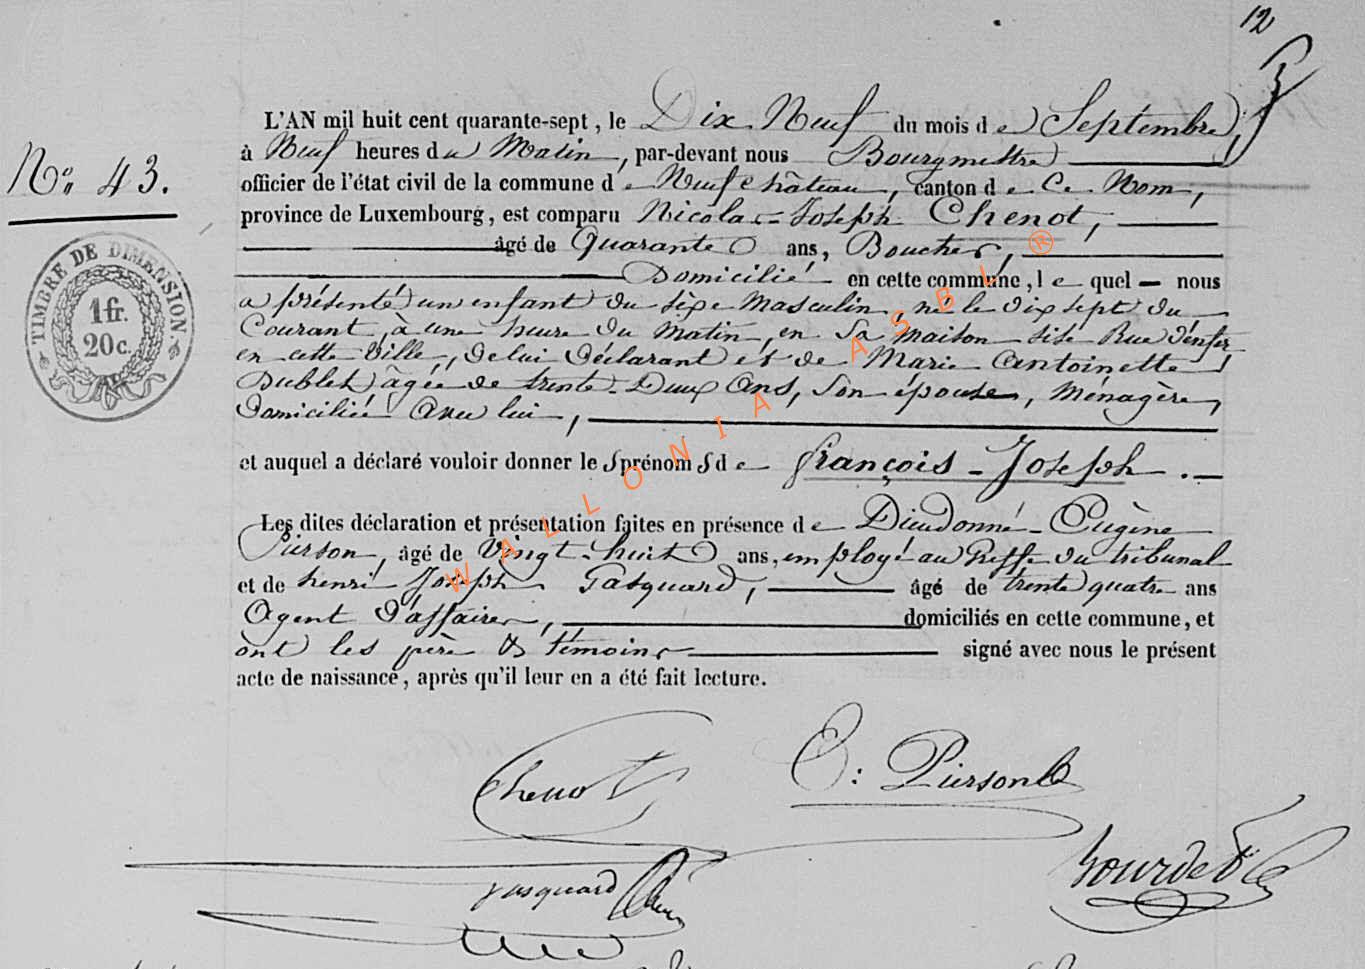 12
L'AN mil huit cent quarante-sept, le Dix Neuf du mois de Septembre,
à Neuf heures du Matin, par-devant nous Bourgmestre
officier de l'état civil de la commune de Neufchâteau, canton de Ce Nom,
N° 43.
province de Luxembourg, est comparu Nicolas-Joseph Chenot,
âgé de Quarante ans, Boucher,
Domicilié en cette commune, le quel nous
a présenté un enfant du sèxe Masculin, né le dix sept du
Courant, à une heure du Matin, en Sa Maison sise Rue d'enfer
en cette Ville, de lui Déclarant et de Marie Antoinette
âgée de trente-Deux Ans, Son épouse, Ménagère,
Domiciliée Avec lui,
et auquel a déclaré vouloir donner le s prénom s de François-Joseph.
Les dites déclaration et présentation faites en présence de Dieudonné-Eugène
Pierson, âgé de Vingt-huit ans, employé au Greffe du tribunal
et de henri Joseph Gasquard, âgé de trente quatre ans
Agent D'affaires, domiciliés en cette commune, et
ont les père & témoins signé avec nous le présent
acte de naissance, après qu'il leur en a été fait lecture.
TIMBRE DE DIMENSION
1 fr.
20 c.
WALLONIA ASBL ®
Chenot
E: Pierson
Gasquard